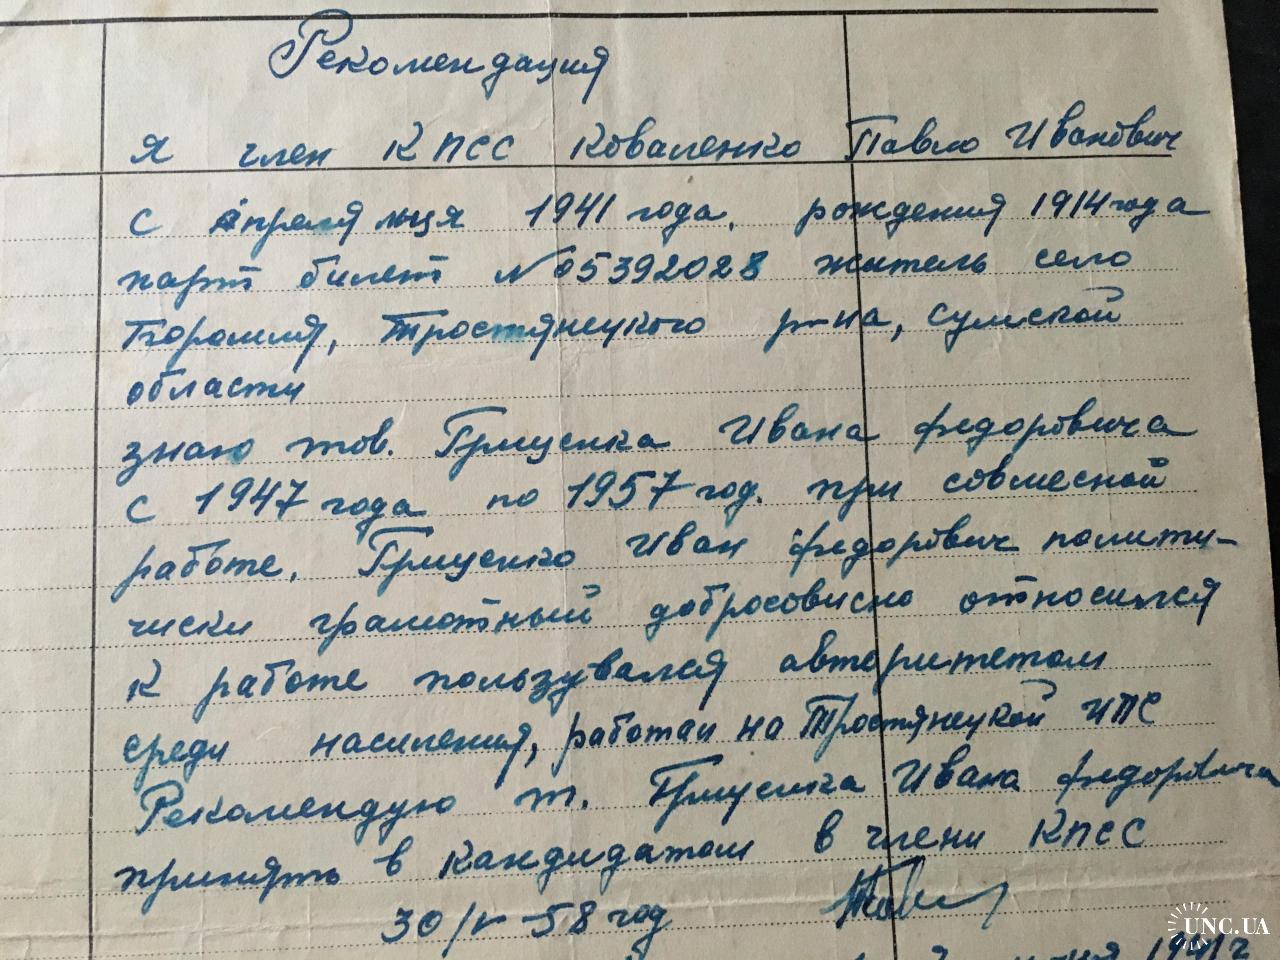 Рекомендация
Я член КПСС Коваленко Павло Иванович
с апреля мця 1941 года. рождения 1914 года
парт билет № 05392028 житель село
Боромля, Тростянецкого р-на, Сумской
области
знаю тов. Гриценка Ивана Федоровича
с 1947 года по 1957 год. при совмесной
работе, Гриценко Иван Федорович полити-
чиски грамотный добросовисно относился
к работе пользувался авторитетом
среди насиления, работаи на Тростянецкой ИПС
Рекомендую т. Гриценка Ивана Федоровича
принять в кандидатом в члени КПСС
30/V-58 год
UNC.UA